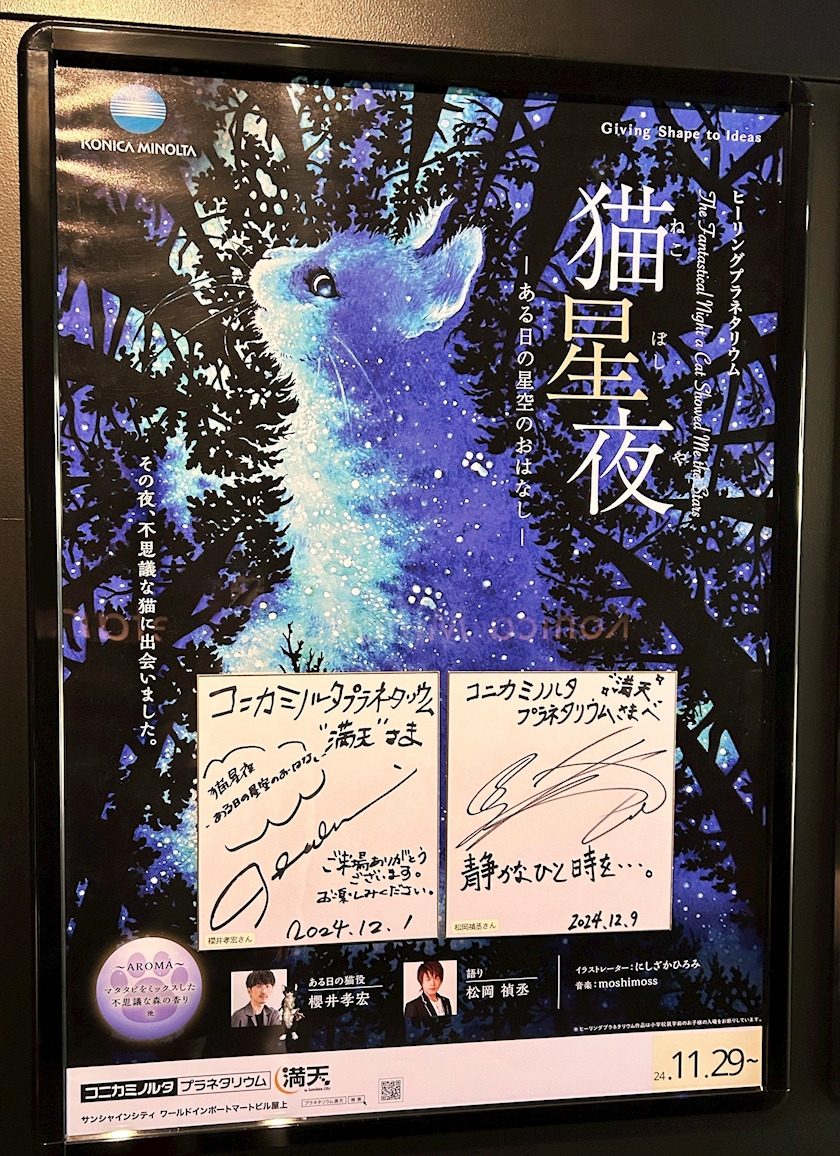 KONICA MINOLTA
Giving Shape to Ideas
ヒーリングプラネタリウム
The Fantastical Night a Cat Showed Me the Stars
猫星夜
ねこ ぼし や
―ある日の星空のおはなし―
その夜、不思議な猫に出会いました。
コニカミノルタプラネタリウム
"満天"さま
猫星夜
-ある日の星空のおはなし-
ご来場ありがとう
ございます。
お楽しみください。
2024.12.1
櫻井孝宏さん
コニカミノルタ "満天"
プラネタリウムさまへ
静かなひと時を…。
2024.12.9
松岡禎丞さん
~AROMA~
マタタビをミックスした
不思議な森の香り
他
ある日の猫役
櫻井孝宏
語り
松岡 禎丞
イラストレーター:にしざかひろみ
音楽:moshimoss
※ヒーリングプラネタリウム作品は小学校就学前のお子様の入場をお断りしています。
コニカミノルタ プラネタリウム 満天
in Sunshine City
サンシャインシティ ワールドインポートマートビル屋上
プラネタリウム満天 検索
24.11.29~